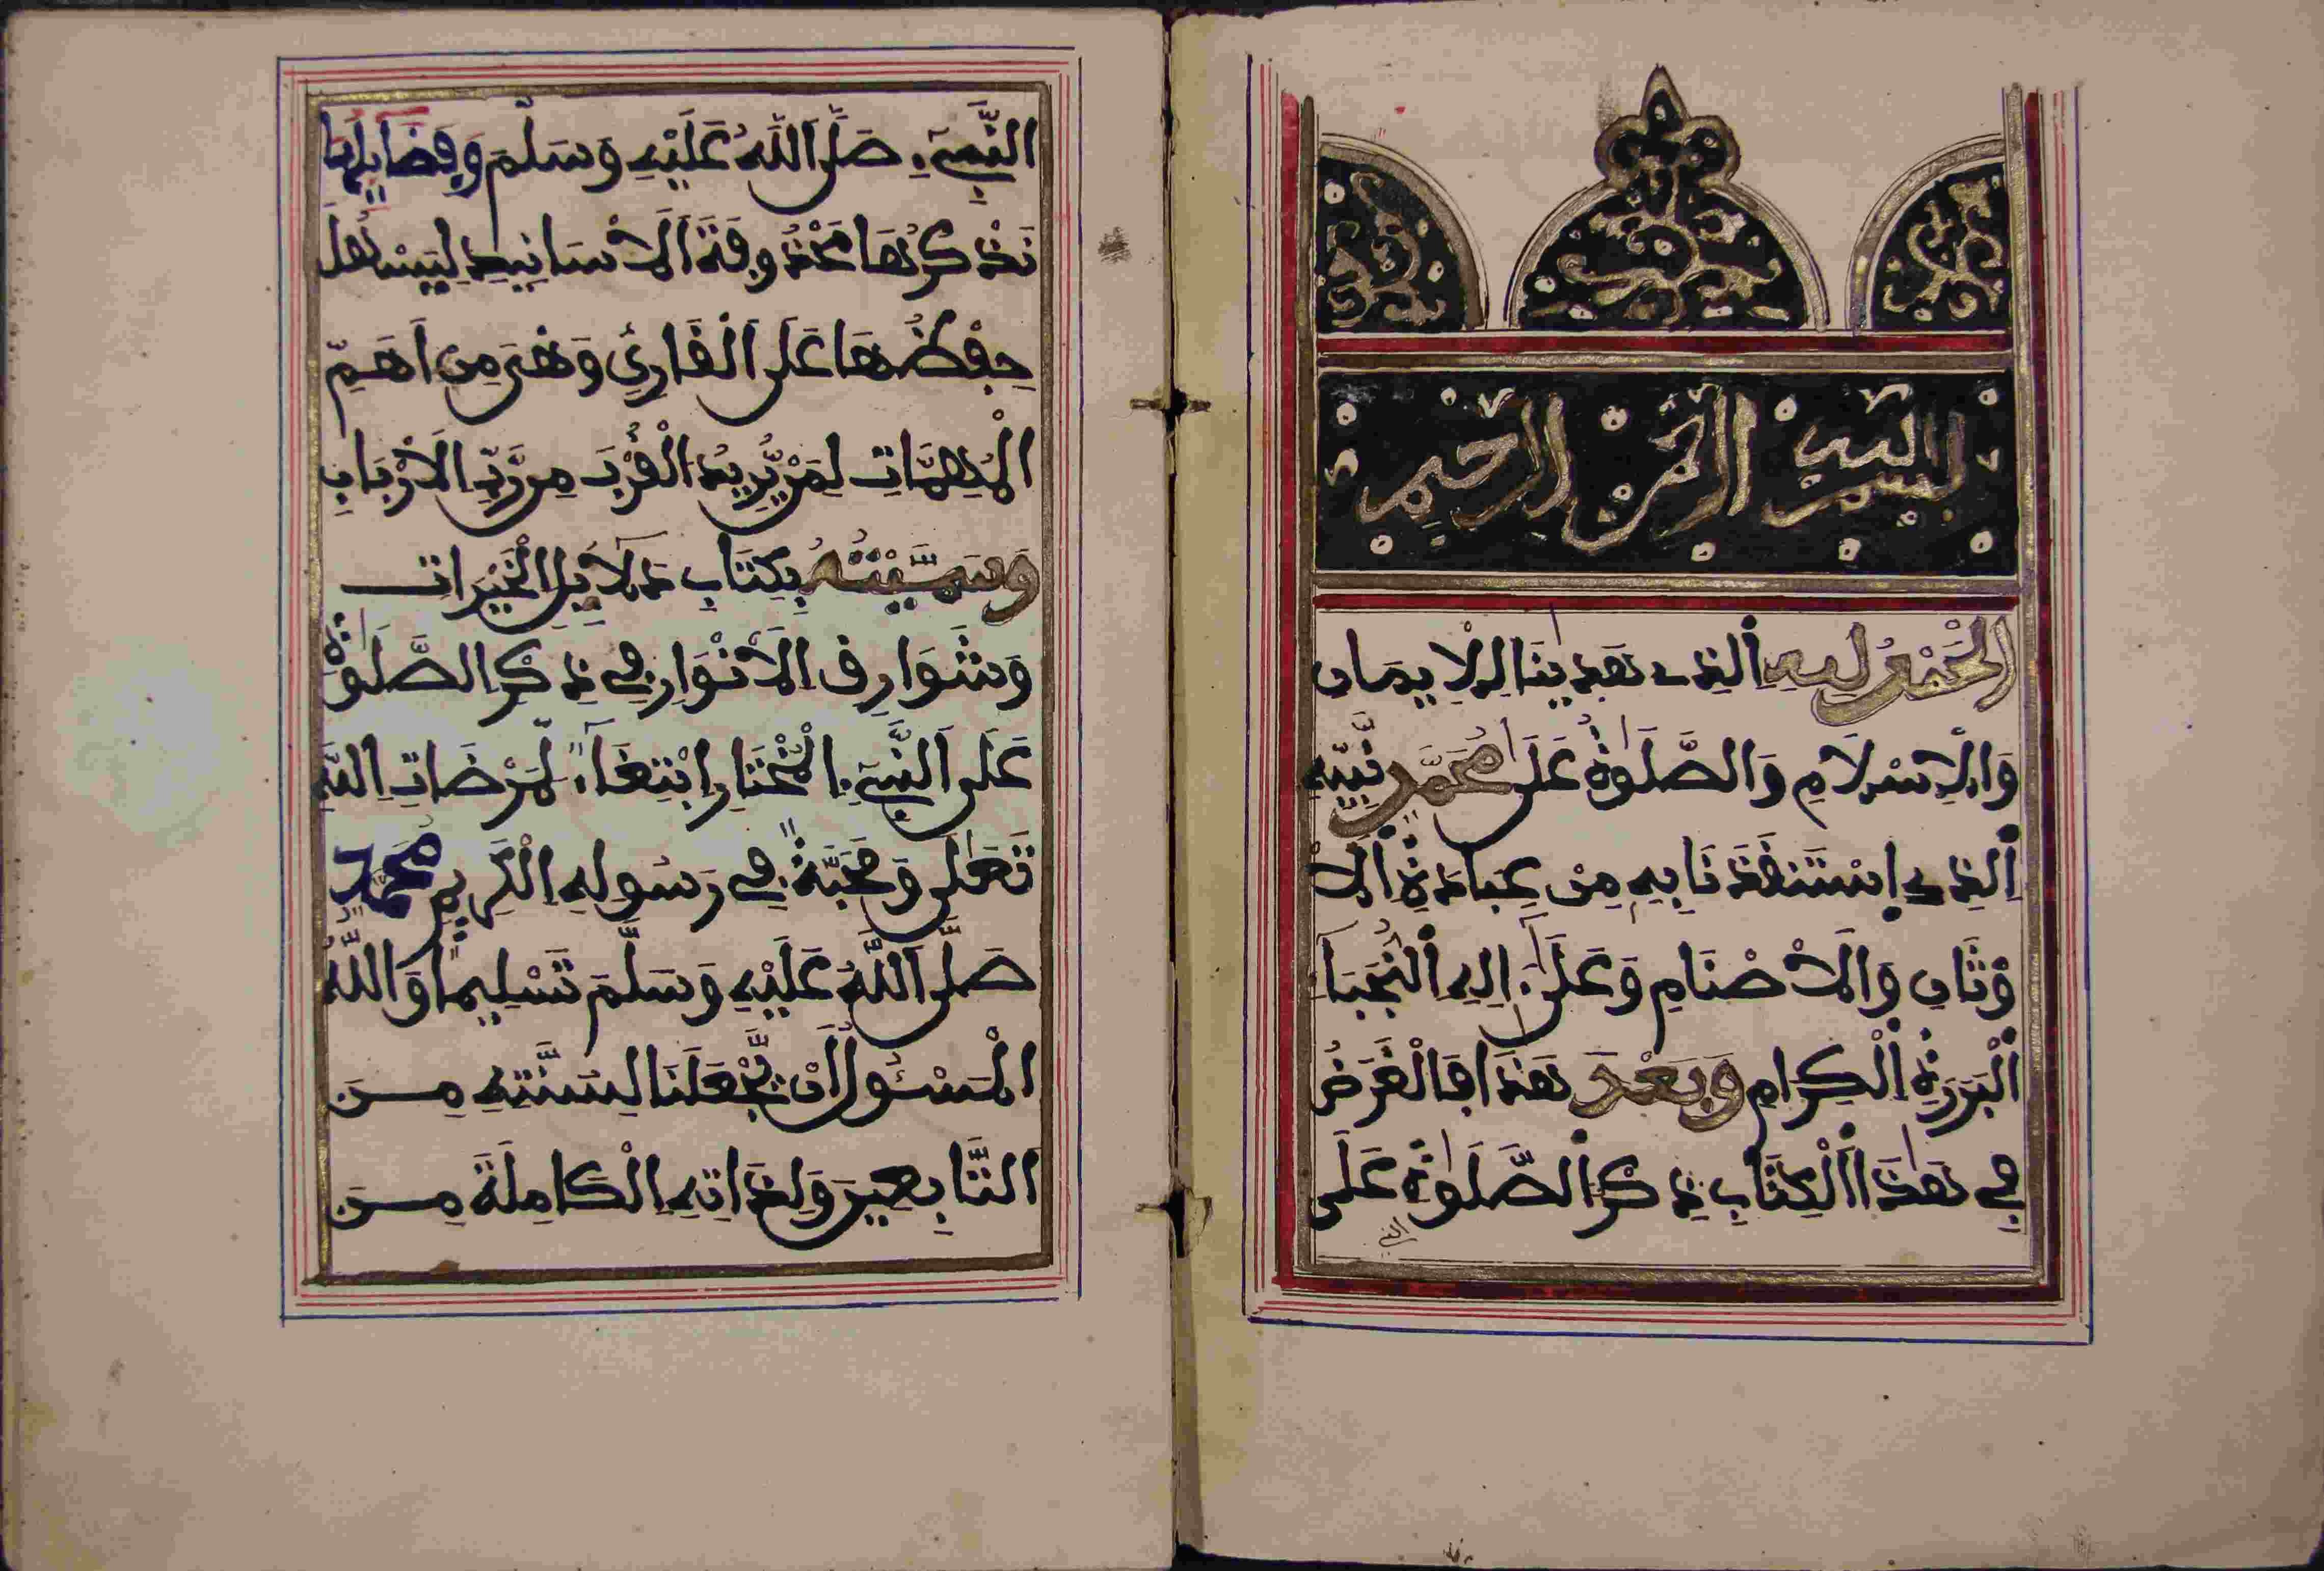 بسم الله الرحمن الرحيم
الْحَمْدُ لِلهِ الذِے هَدِينَا لِلْإِيمَانِ
وَالِاسْلَامِ وَالصَّلَوٰةُ عَلَى مُحَمَّدٍ نَّبِيِّهِ
الذِے اِسْتَنفَذَنَا بِهِ مِنْ عِبَادَةِ الَا
وْثَانِ وَالَاصْنَامِ وَعَلَىٰ ءَالِهِ النُّجَبَآءِ
الْبَرَرَةِ الْكِرَامِ وَبَعْدَ هَذَا فَالْغَرَضُ
فِے هَٰذَا الْكِتَابِ ذِكْرُ الصَّلَوٰةِ عَلَى
النبي
النَّبِےءِ صَلَّى اللَّهُ عَلَيْهِ وَسَلَّمَ وَفَضَآئِلِهَا
نَذْكُرُهَا مَحْذُوفَةَ الَاسَانِيدِ لِيَسْهُلَ
حِفْظُهَا عَلَى الْقَارِئِ وَهِىَ مِنَ اَهَمِّ
الْمُهِمَّاتِ لِمَنْ يُّرِيدُ الْقُرْبَ مِن رَّبِّ الَارْبَابِ
وَسَمَّيْتُهُ بِكِتَابِ دَلَآئِلِ الْخَيْرَاتِ
وَشَوَارِقِ الَانْوَارِ فِے ذِكْرِ الصَّلَوٰةِ
عَلَى النَّبِےءِ الْمُخْتَارِ ابْتِغَآءً لِّمَرْضَاتِ اللَّهِ
تَعَلَىٰ وَمَحَبَّةً فِے رَسُولِهِ الْكَرِيمِ مُحَمَّدٍ
صَلَّى اللَّهُ عَلَيْهِ وَسَلَّمَ تَسْلِيماً وَاللَّهُ
الْمَسْئُولُ أَنْ يَّجْعَلَنَا لِسُنَّتِهِ مِنَ
التَّابِعِينَ وَلِذَاتِهِ الْكَامِلَةِ مِنَ